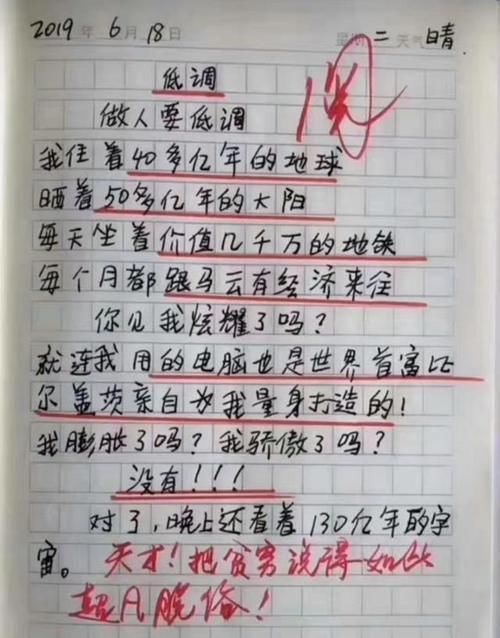 2019 年 6 月 18 日 星期 二 天气 晴
低调
做人要低调
我住着40多亿年的地球
晒着50多亿年的大阳
每天坐着价值几千万的地铁
每个月都跟马云有经济来往
你见我炫耀了吗？
就连我用的电脑也是世界首富比
尔盖茨亲自为我量身打造的！
我膨胀了吗？我骄傲了吗？
没有！！！
对了，晚上还看着130亿年的宇
宙。天才！把贫穷说得如此
超凡脱俗！
阅